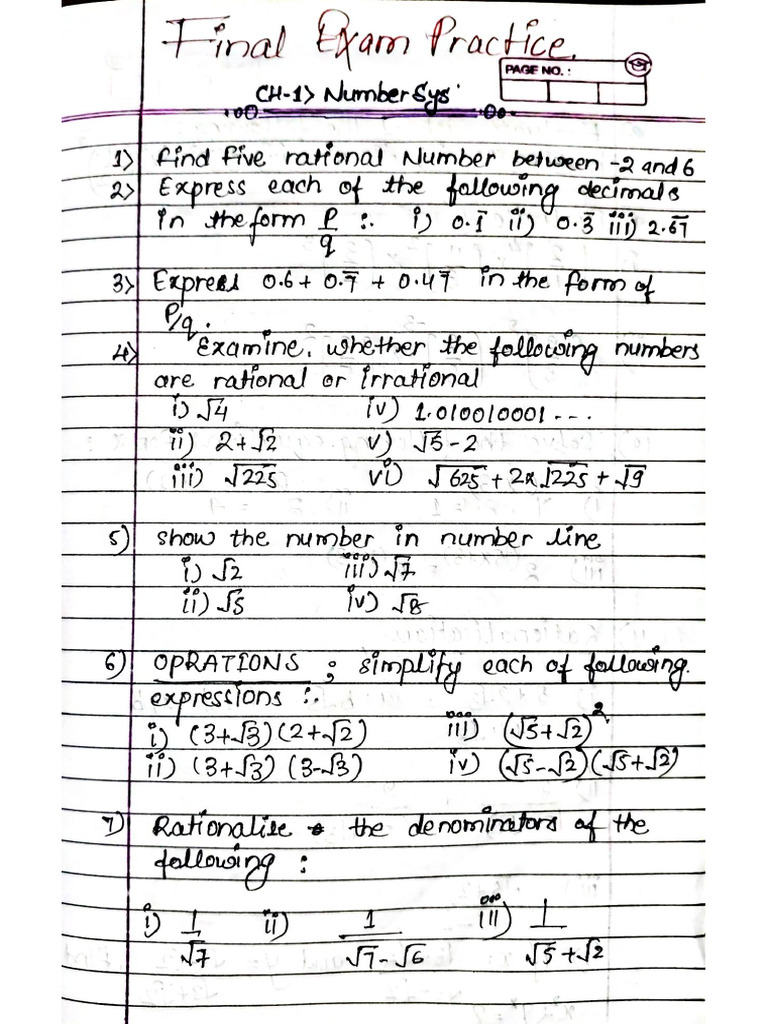 Final Exam Practice.
PAGE NO.:
CH-1> Number Sys.
1> Find Five rational Number between -2 and 6
2> Express each of the following decimals
in the form P/q :. i) 0.1̅ ii) 0.3̅ iii) 2.6̅7̅
3> Express 0.6 + 0.7̅ + 0.47̅ in the form of
P/q.
4> Examine, whether the following numbers
are rational or irrational
i) √4 iv) 1.010010001...
ii) 2+√2 v) √5-2
iii) √225 vi) √625 + 2x√225 + √9
5) show the number in number line
i) √2 iii) √7
ii) √5 iv) √8
6) OPRATIONS ; simplify each of following.
expressions :.
i) (3+√3)(2+√2) iii) (√5+√2)²
ii) (3+√3) (3-√3) iv) (√5-√2)(√5+√2)
7) Rationalise the denominators of the
following :
i) 1/√7 ii) 1/√7-√6 iii) 1/√5+√2